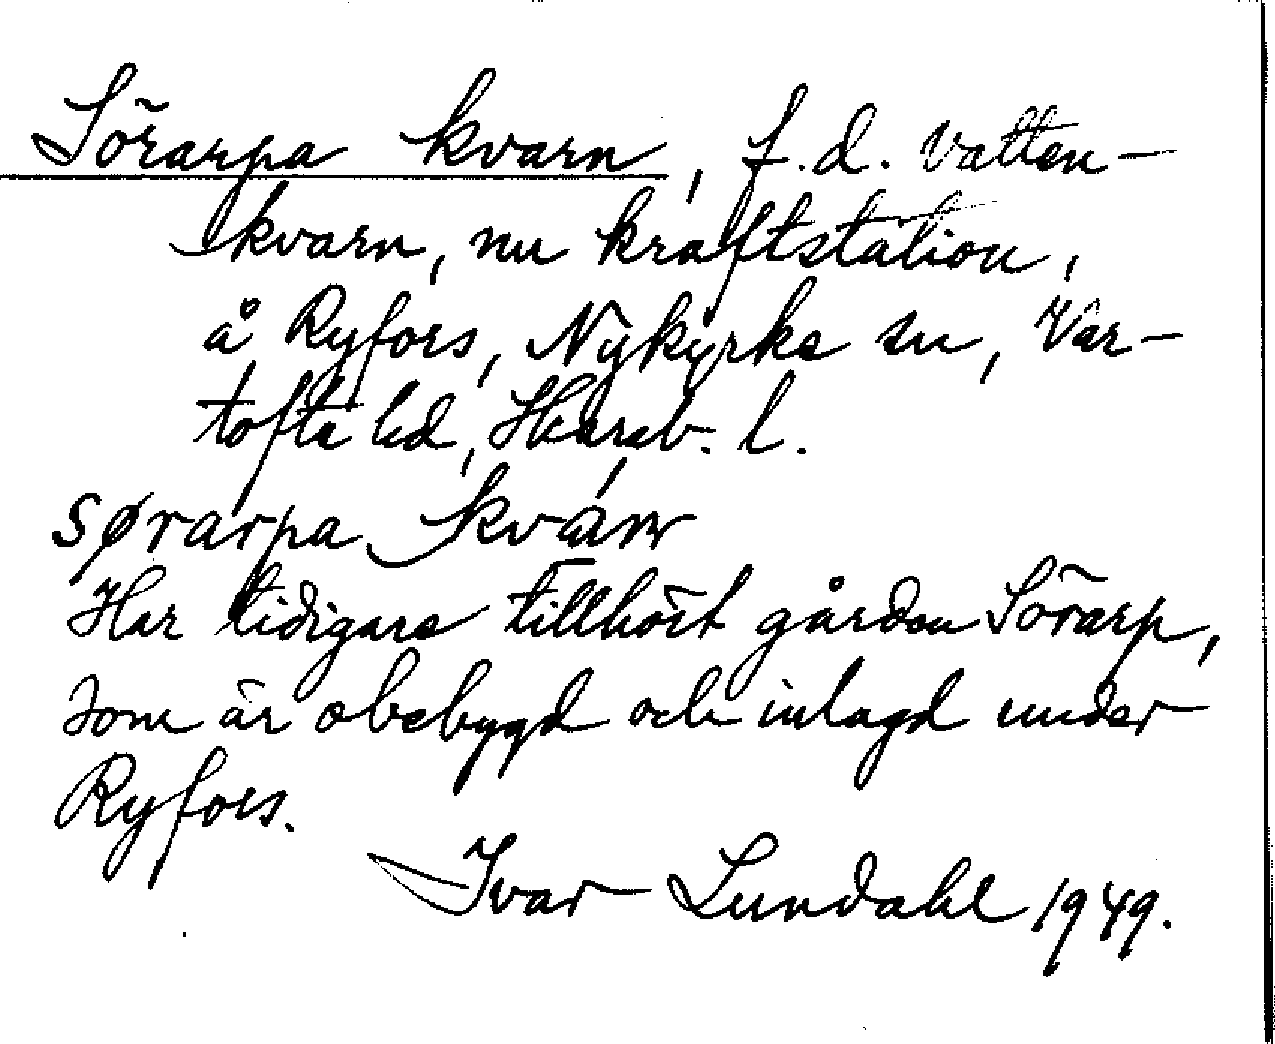 Sörarpa kvarn, f.d. vatten-
kvarn, nu kraftstation,
å Ryfors, Nykyrke sn, Var-
tofta hd, Skarab. l.
sørarpa kva̱n
Har tidigare tillhört gården Sörarp,
som är obebygd och inlagd under
Ryfors.
Ivar Lundahl 1949.